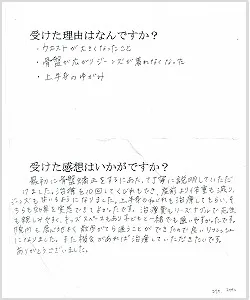 受けた理由はなんですか？
・ウエストが太くなったこと
・骨盤が広がりジーンズが着れなくなった
・上半身のゆがみ
受けた感想はいかがですか？
最初に骨盤矯正をするにあたって丁寧に説明していただ
けました。治療も10回してくびれもでき、産前より体重も減り、
ジーンズも歩いるようになりました。上半身のねじれも治療してもらい、そ
ちらも効果を実感できてよかったです。治療費もリーズナブルで先生
も親しみやすく、キッズスペースもあり子どもと一緒でも通いやすかったです。
院内も居心地よく散歩がてら通うことができたので良いリフレッシュ
になりました。また機会があれば治療していただきたいです。
ありがとうございました。